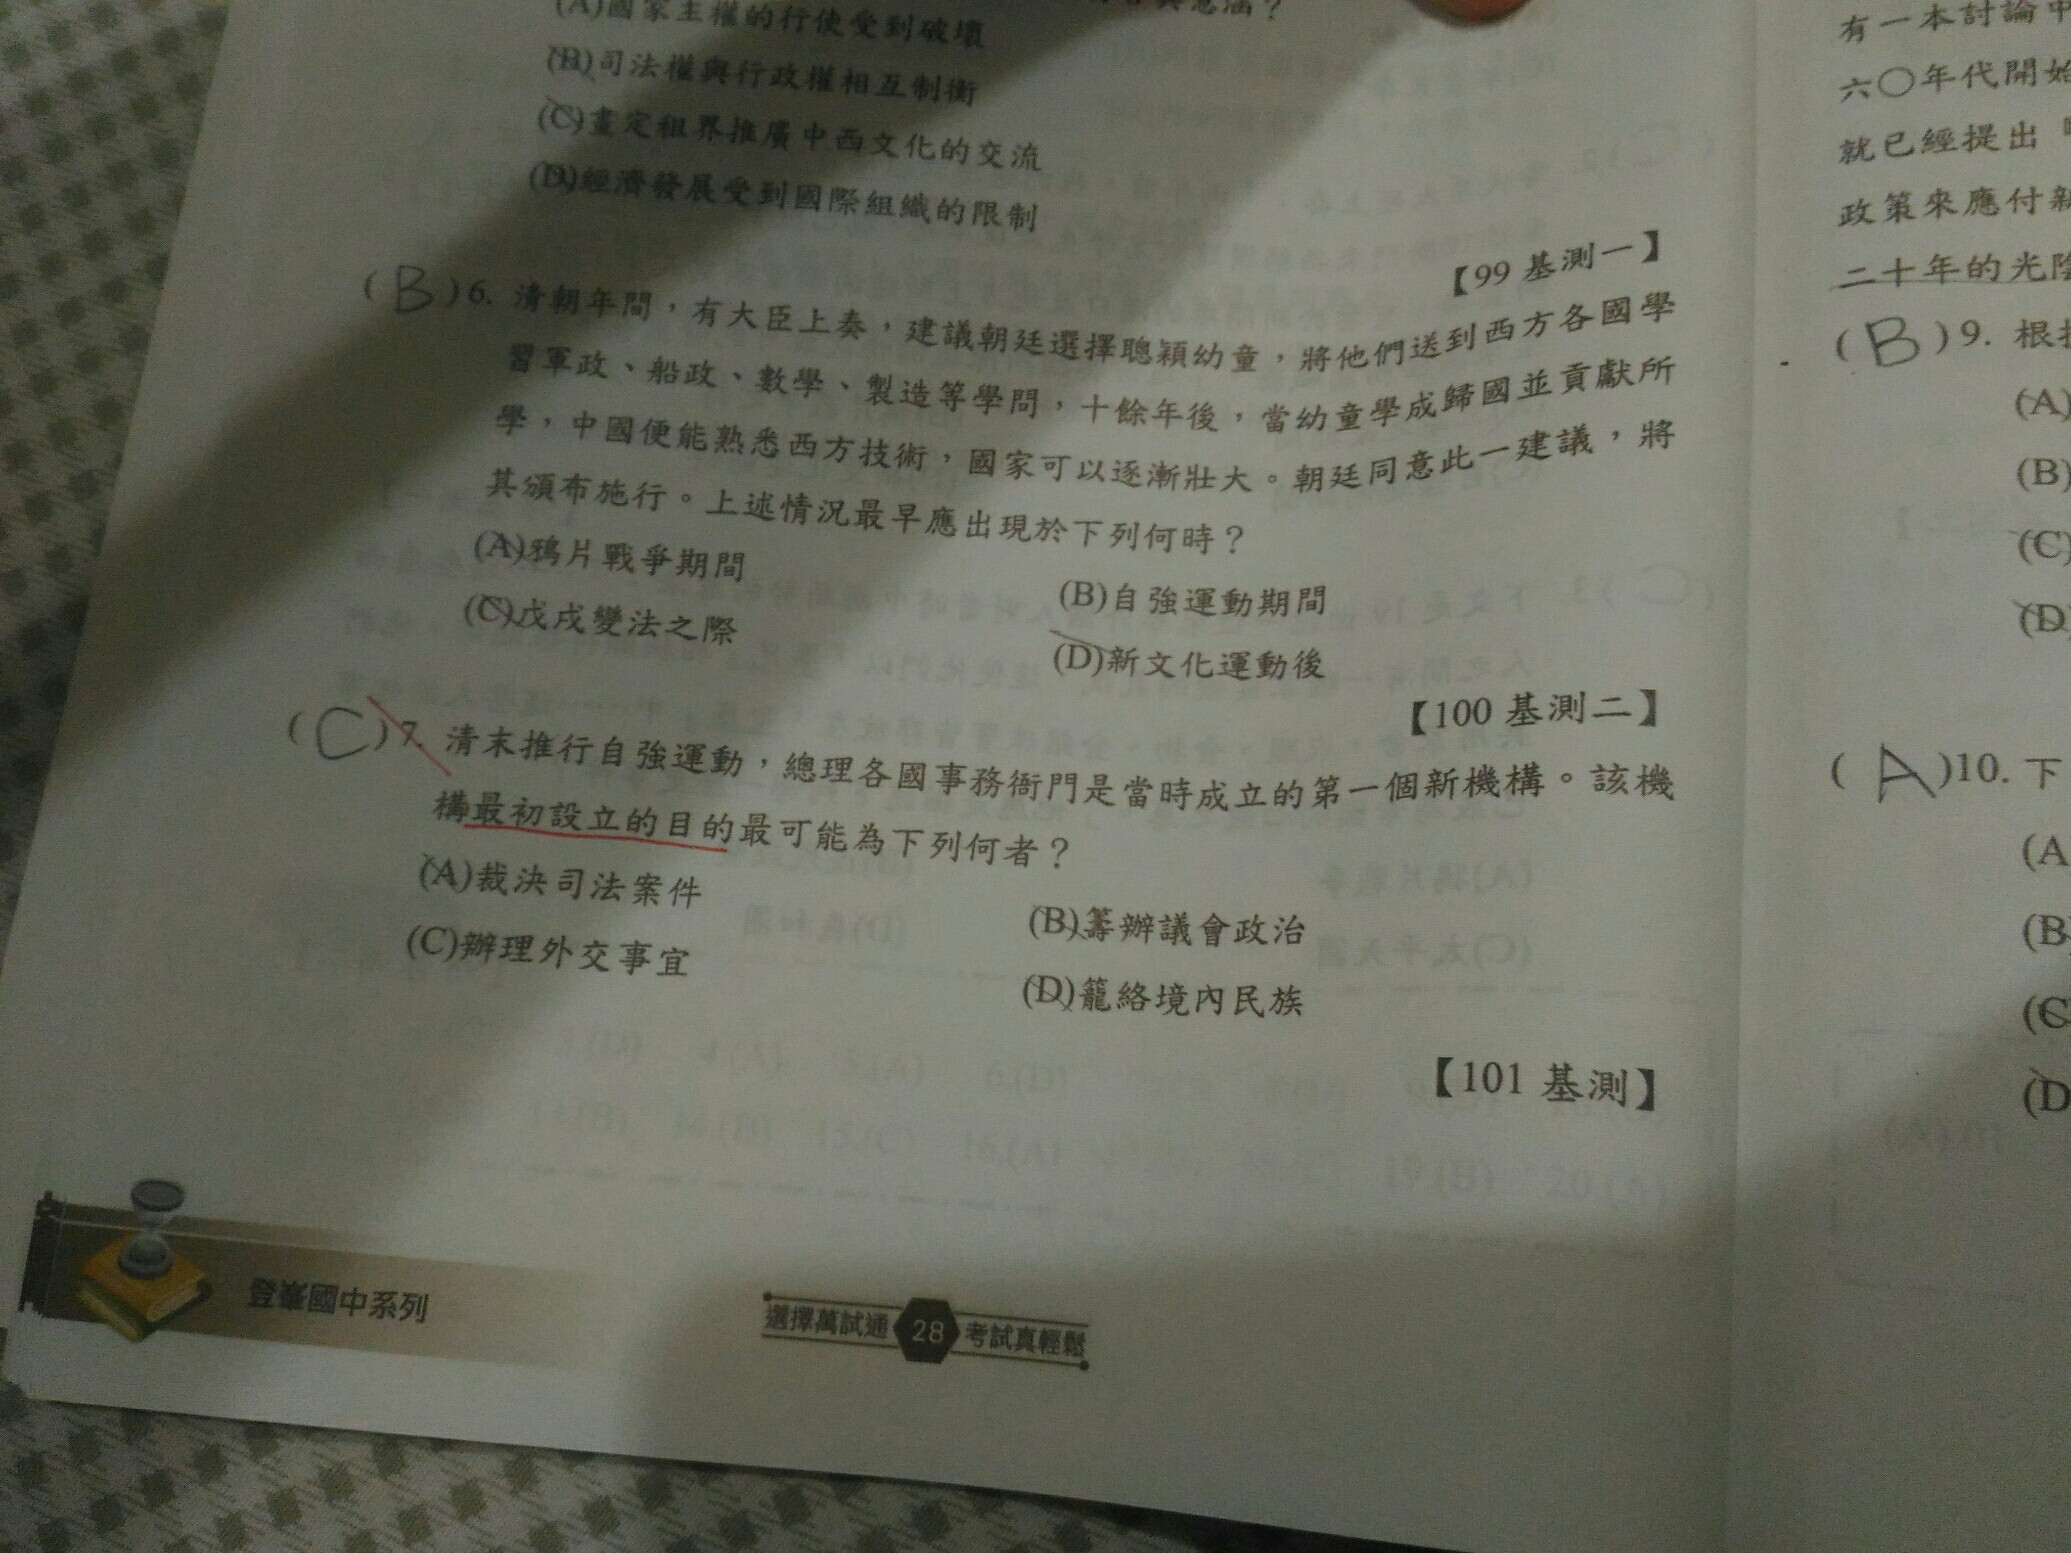 (A)國家主權的行使受到破壞
(B)司法權與行政權相互制衡
(C)畫定租界推廣中西文化的交流
(D)經濟發展受到國際組織的限制
【99 基測一】
(B)6. 清朝年間，有大臣上奏，建議朝廷選擇聰穎幼童，將他們送到西方各國學
習軍政、船政、數學、製造等學問，十餘年後，當幼童學成歸國並貢獻所
學，中國便能熟悉西方技術，國家可以逐漸壯大。朝廷同意此一建議，將
其頒布施行。上述情況最早應出現於下列何時？
(A)鴉片戰爭期間
(B)自強運動期間
(C)戊戌變法之際
(D)新文化運動後
【100 基測二】
(C)7. 清末推行自強運動，總理各國事務衙門是當時成立的第一個新機構。該機
構最初設立的目的最可能為下列何者？
(A)裁決司法案件
(B)籌辦議會政治
(C)辦理外交事宜
(D)籠絡境內民族
【101 基測】
登峯國中系列
選擇萬試通 28 考試真輕鬆
有一本討論中
六〇年代開始
就已經提出
政策來應付新
二十年的光陰
(B)9. 根據
(A)
(B)
(C)
(D)
(A)10. 下
(A)
(B)
(C)
(D)